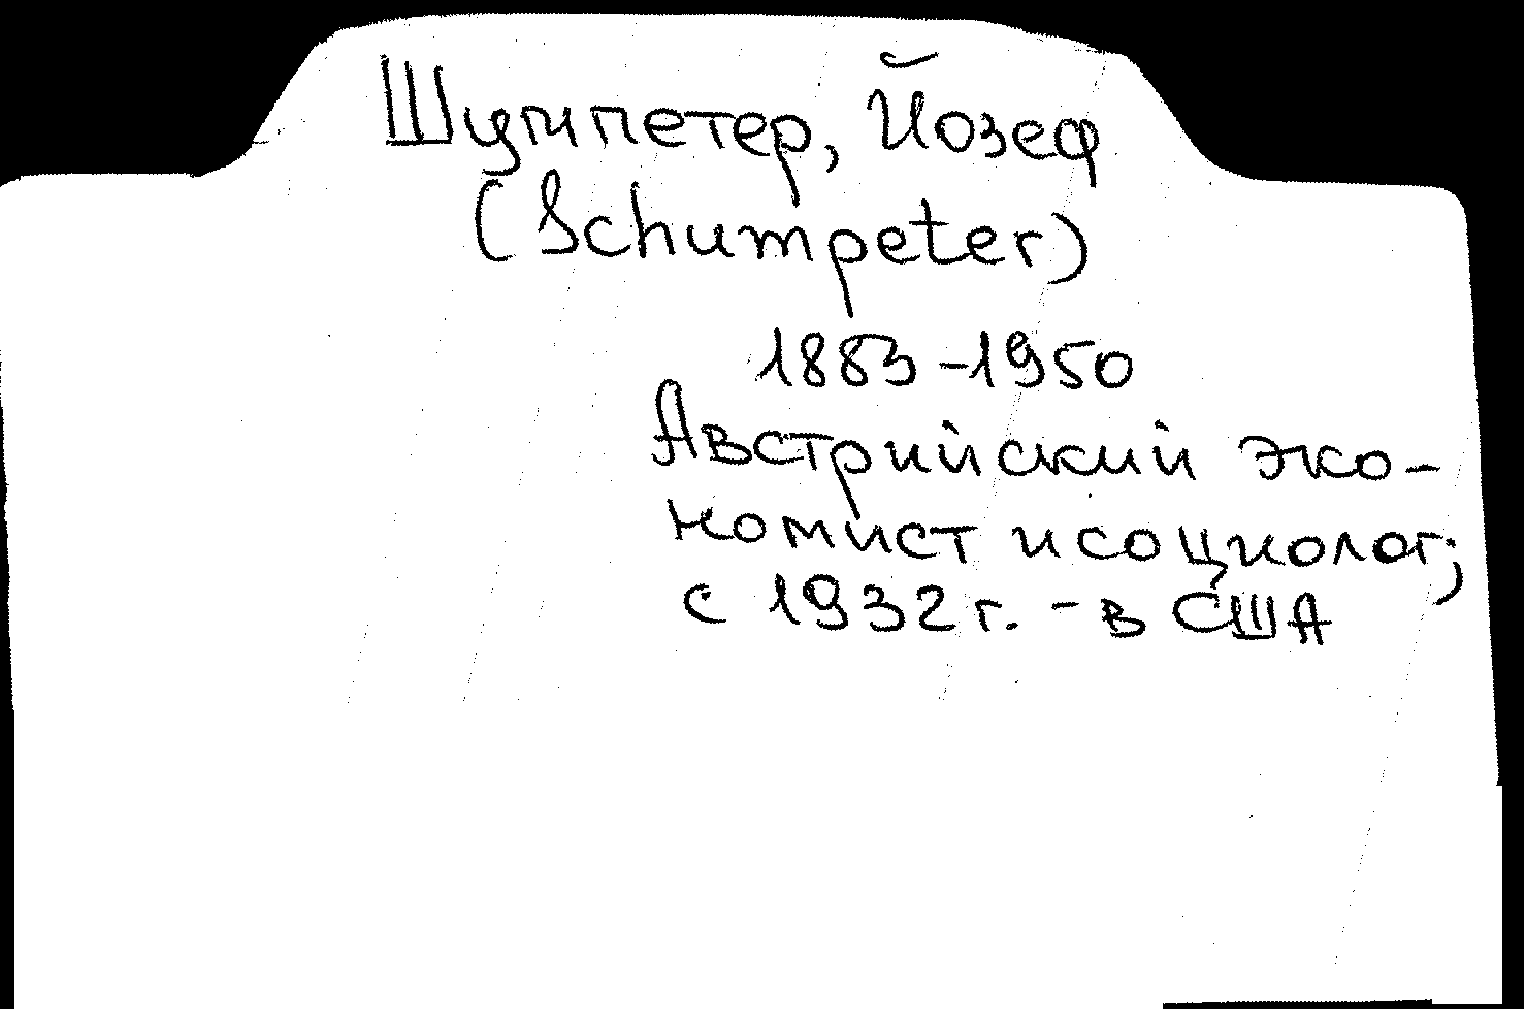 Шумпетер, Йозеф
(Schumpeter)
1883-1950
Австрийский эко-
номист и социолог;
с 1932 г. - в США